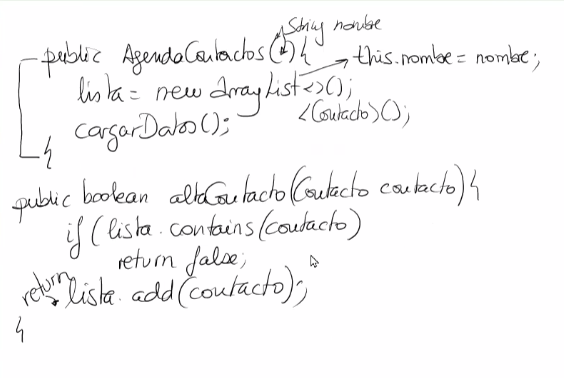 String nombre
public AgendaContactos(){ this.nombre = nombre;
lista = new ArrayList<>();
<Contacto>();
cargarDatos();
}
public boolean altaContacto(Contacto contacto){
if (lista.contains(contacto)
return false;
return lista.add(contacto);
}